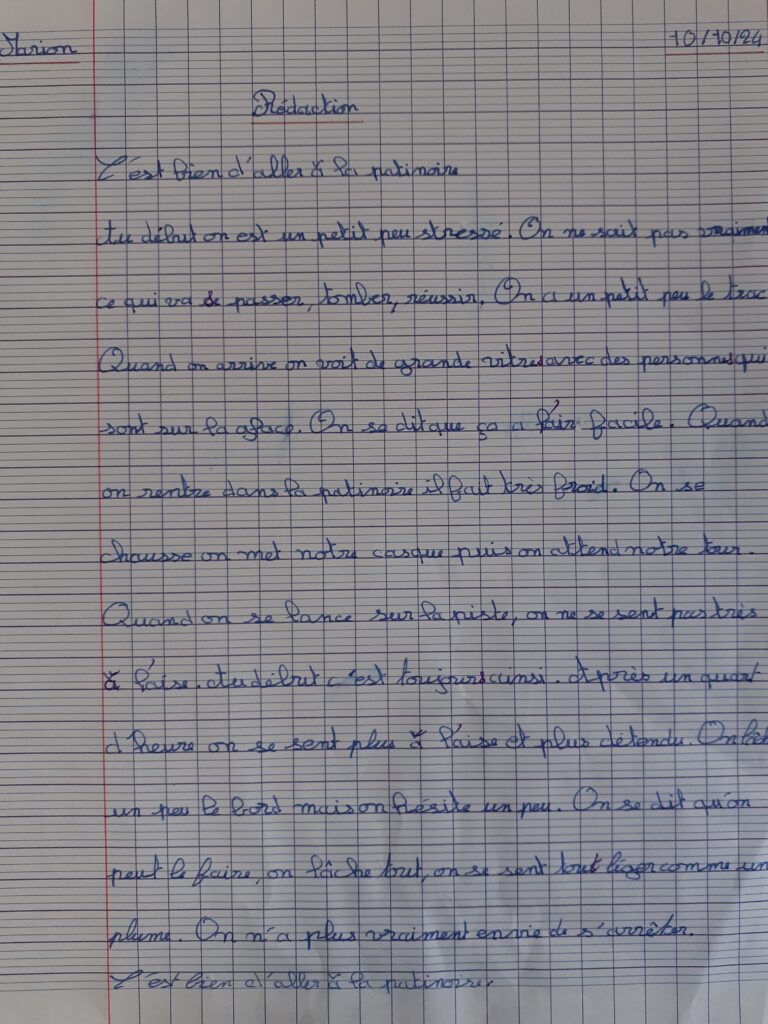 Marion 10/10/24
Rédaction
C'est bien d'aller à la patinoire
Au début on est un petit peu stressé. On ne sait pas vraiment
ce qui va se passer, tomber, réussir. On a un petit peu le trac
Quand on arrive on voit de grande vitres avec des personnes qui
sont sur la glace. On se dit que ça a l'air facile. Quand
on rentre dans la patinoire il fait très froid. On se
chausse on met notre casque puis on attend notre tour.
Quand on se lance sur la piste, on ne se sent pas très
à l'aise. Au début c'est toujours ainsi. Après un quart
d'heure on se sent plus à l'aise et plus détendu. On
un peu le bord mais on hésite un peu. On se dit qu'on
peut le faire, on lâche tout, on se sent tout léger comme un
plume. On n'a plus vraiment envie de s'arrêter.
C'est bien d'aller à la patinoire.